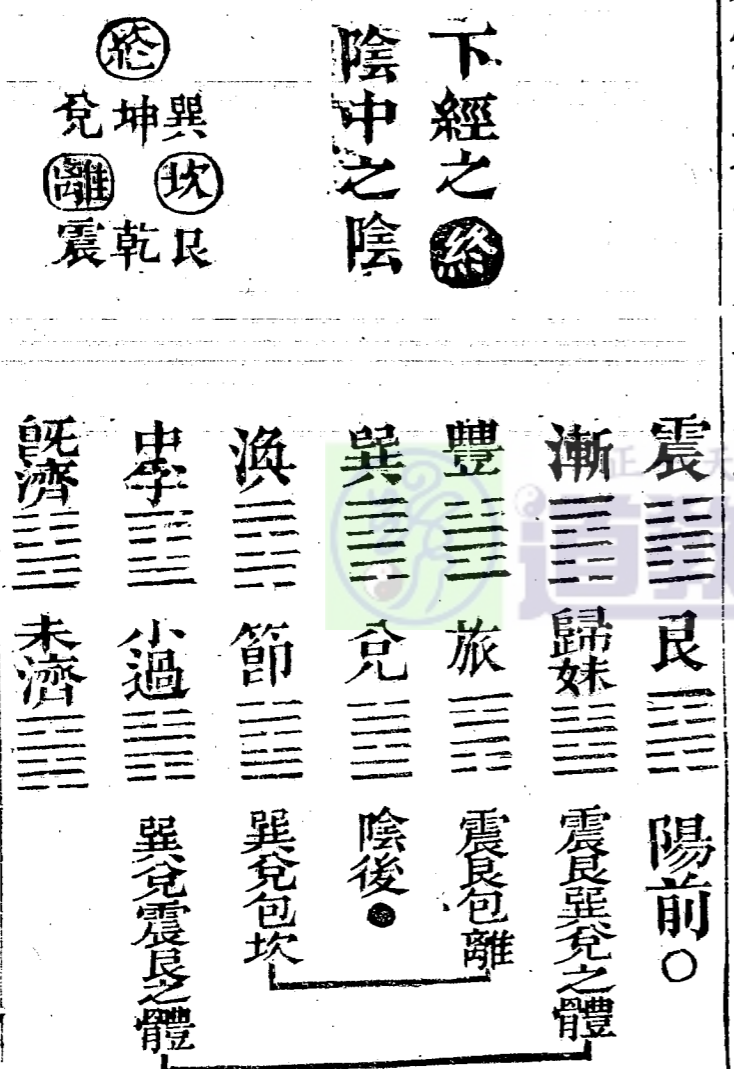 下經之終
陰中之陰
終
巽坤兌
坎離
艮乾震
震 艮 陽前○
漸 歸妹 震艮巽兌之體
豐 旅 震艮包離
巽 兌 陰後●
渙 節 巽兌包坎
中孚 小過 巽兌震艮之體
旣濟 未濟
正 天
道教